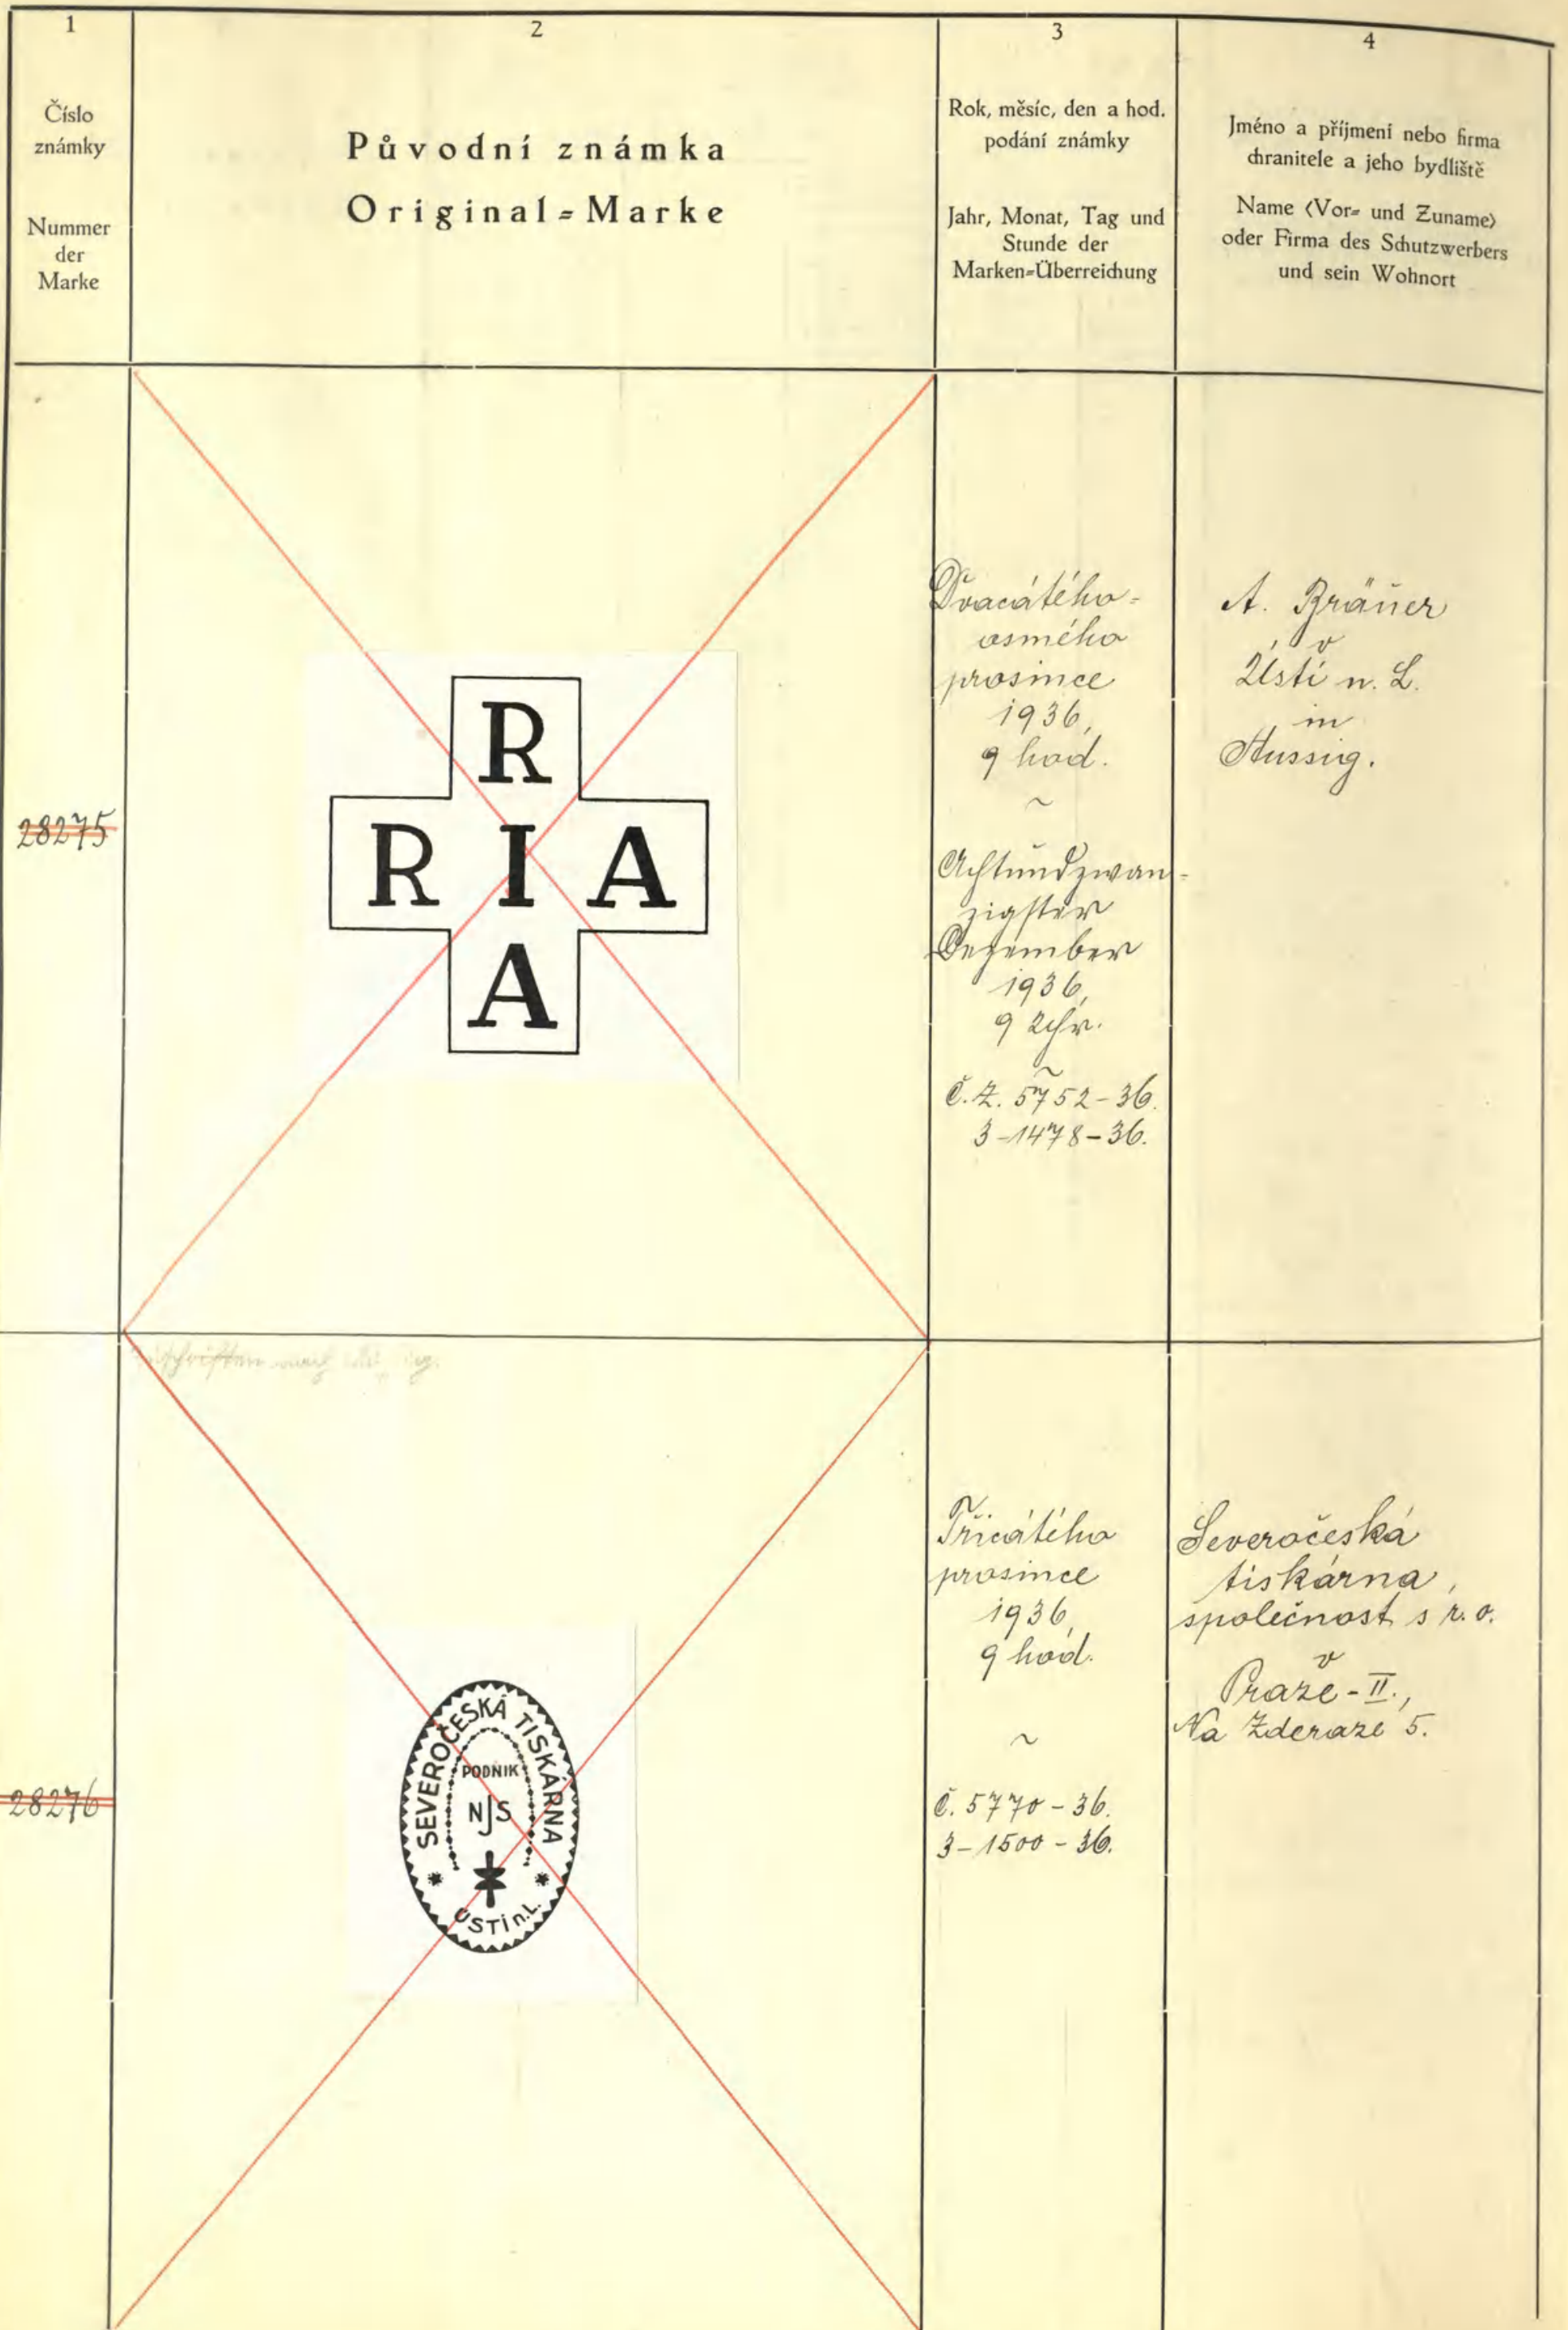 1
Číslo
známky
Nummer
der
Marke
2
Původní známka
Original=Marke
3
Rok, měsíc, den a hod.
podání známky
Jahr, Monat, Tag und
Stunde der
Marken=Überreichung
4
Jméno a příjmení nebo firma
chranitele a jeho bydliště
Name (Vor= und Zuname)
oder Firma des Schutzwerbers
und sein Wohnort
28275
R
R I A
A
Dvacátého=
osmého
prosince
1936,
9 hod.
~
Achtundzwan-
zigster
Dezember
1936,
9 Uhr.
~
Č.Z. 5752-36.
3-1478-36.
A. Bräuer
v
Ústí n. L.
in
Aussig.
28276
SEVEROČESKÁ TISKÁRNA
PODNIK
NJS
* *
ÚSTÍ n.L.
Třicátého
prosince
1936,
9 hod.
~
Č. 5770-36.
3-1500-36.
Severočeská
tiskárna,
společnost s r. o.
v
Praze-II.,
Na Zderaze 5.